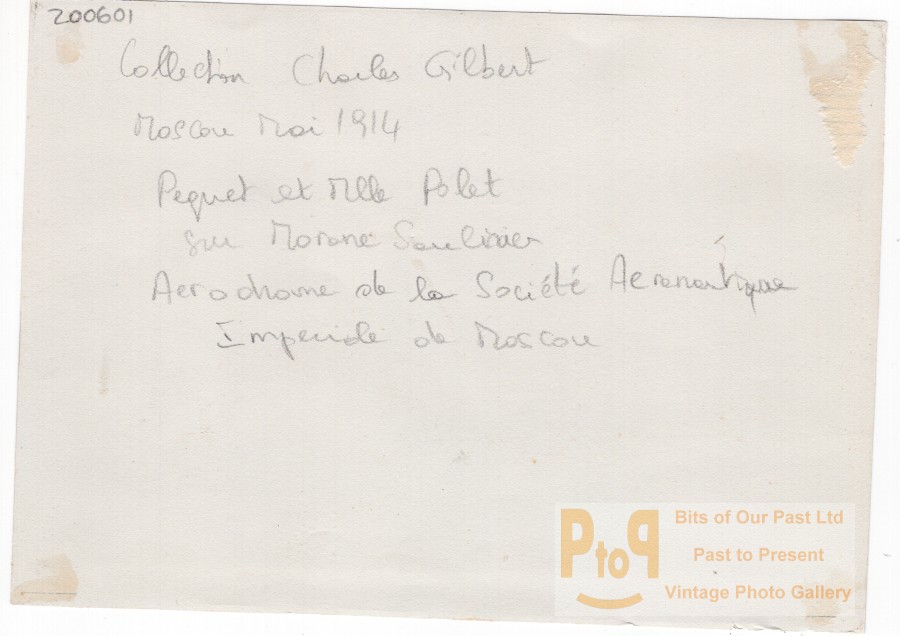 200601
Collection Charles Gilbert
Moscou Mai 1914
Pequet et Mlle Polet
sur Morane Saulinier
Aerodrome de la Société Aeronautique
Imperiale de Moscou
PtoP
Bits of Our Past Ltd
Past to Present
Vintage Photo Gallery